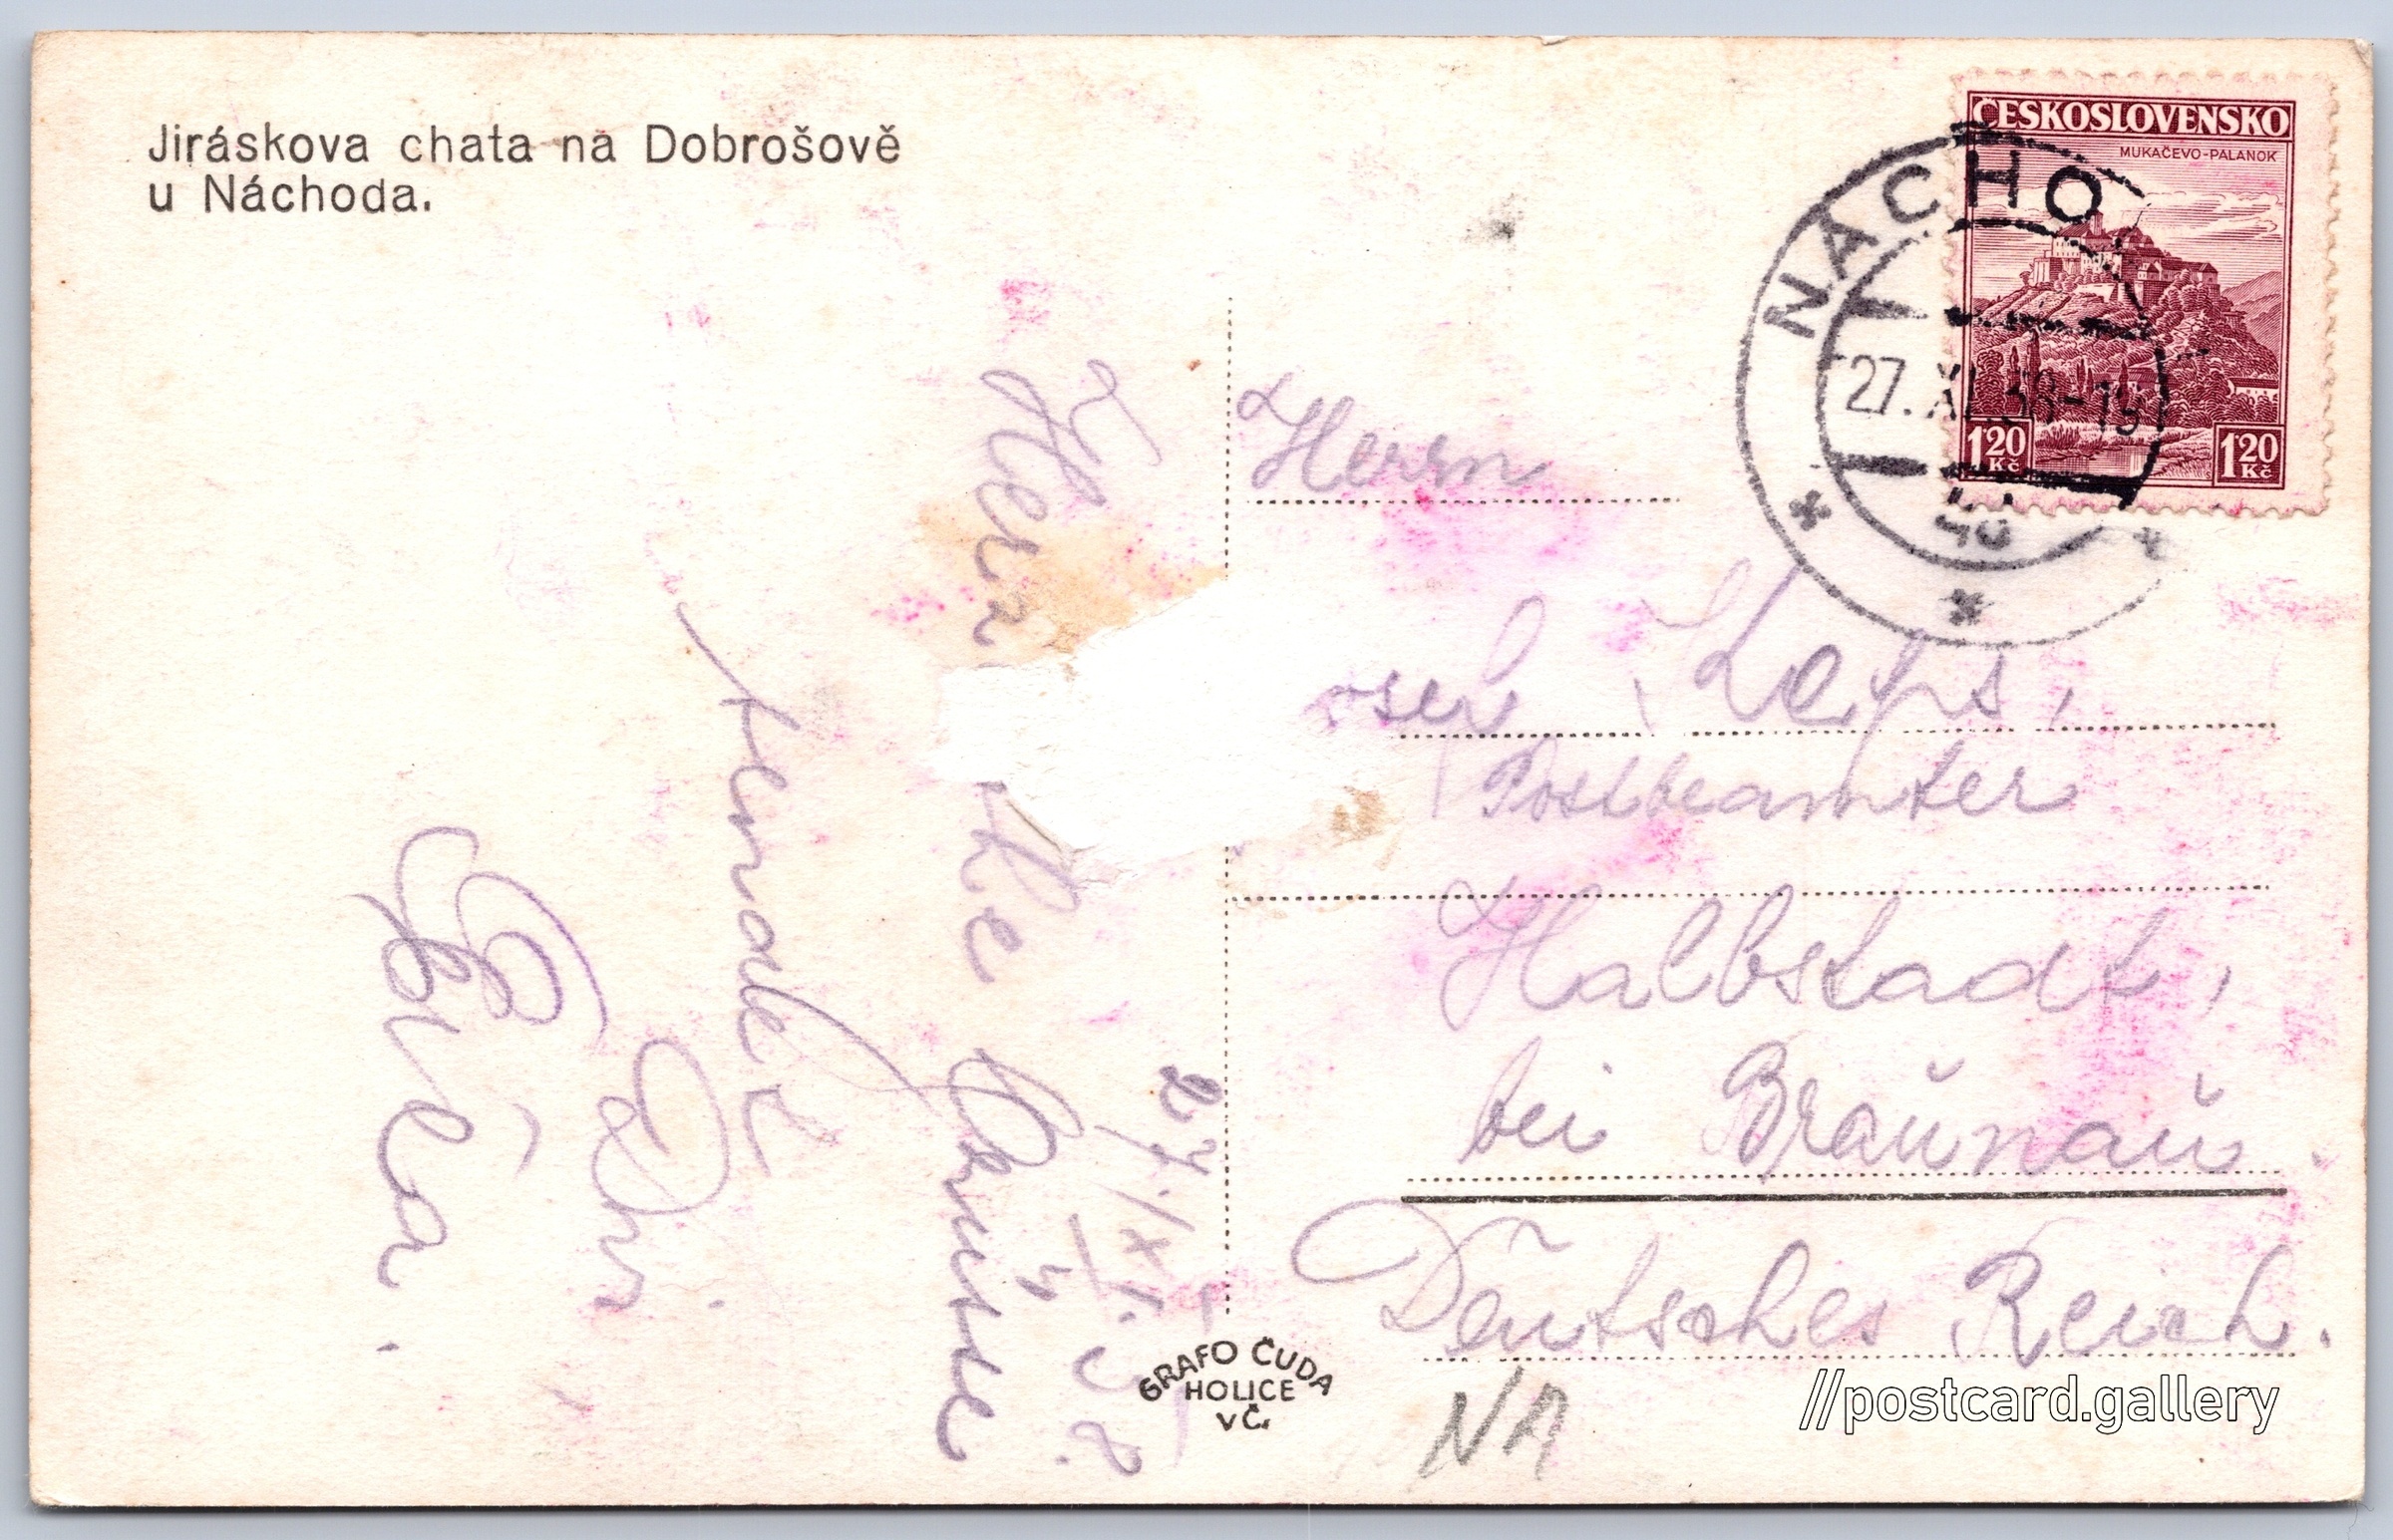 Jiráskova chata na Dobrošově
u Náchoda.
ČESKOSLOVENSKO
MUKAČEVO-PALANOK
1'20 Kč
1'20 Kč
NÁCHO
27. XI. 38-19
Herrn
Postbeamter
Halbstadt,
bei Braŭnaŭ.
Deŭtsches Reich.
NA
27./XI. 38.
Grüsse
sendet
Dir
GRAFO ČUDA
HOLICE
V Č.
//postcard.gallery